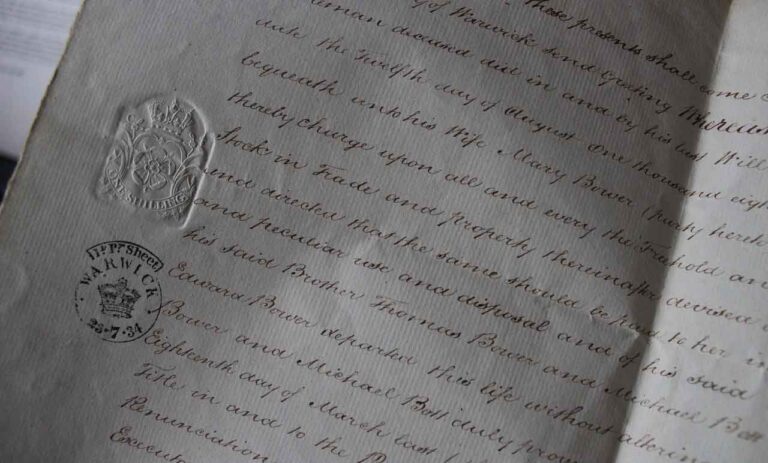 these presents shall come
of Warwick send Greeting Whereas
deceased did in and by his last Will
date the Twelfth day of August One thousand eigh
bequeath unto his Wife Mary Bower (party hereto
thereby charge upon all and every the Freehold an
Stock in Trade and property thereinafter devised
and directed that the same should be paid to her in
and peculiar use and disposal and of his said
his said Brother Thomas Bower and Michael Bott
Edward Bower departed this life without alterin
Bower and Michael Bott duly prov
Eighteenth day of March last
Title in and to the
Renunciation
Executo
ONE SHILLING
Pr Sheet
WARWICK
23·7·34